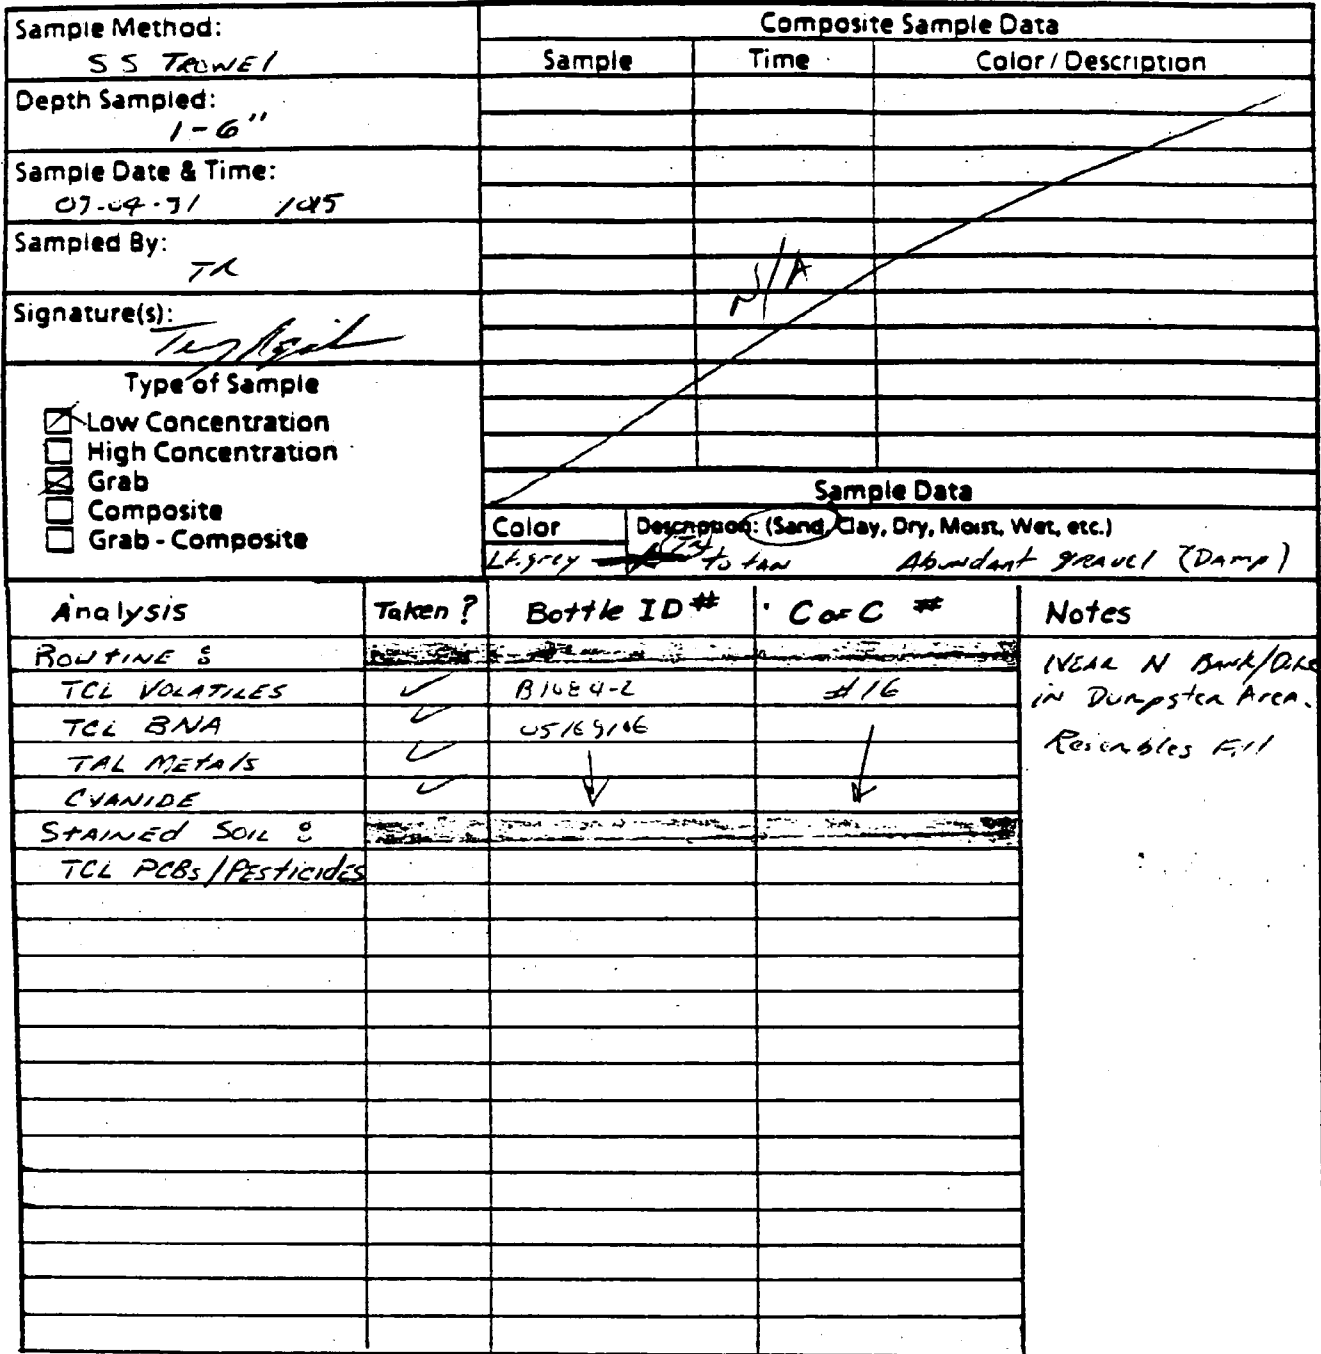 Sample Method:
SS TROWEl
Depth Sampled:
1-6"
Sample Date & Time:
1015
Sampled By:
TR
Signature(s):
Type of Sample
Low Concentration
High Concentration
Grab
Composite
Grab - Composite
Composite Sample Data
Sample Time Color / Description
N/A
Sample Data
Color Description: (Sand, Clay, Dry, Moist, Wet, etc.)
Lt. grey TR to tan Abundant gravel (Damp)
Analysis Taken? Bottle ID # C of C # Notes
ROUTINE :
TCL VOLATILES ✓ #16
TCL BNA ✓
TAL Metals ✓
CYANIDE ✓
Stained Soil :
TCL PCBs/Pesticides
NEAR N Bank/
in Dumpster Area.
Resembles Fill